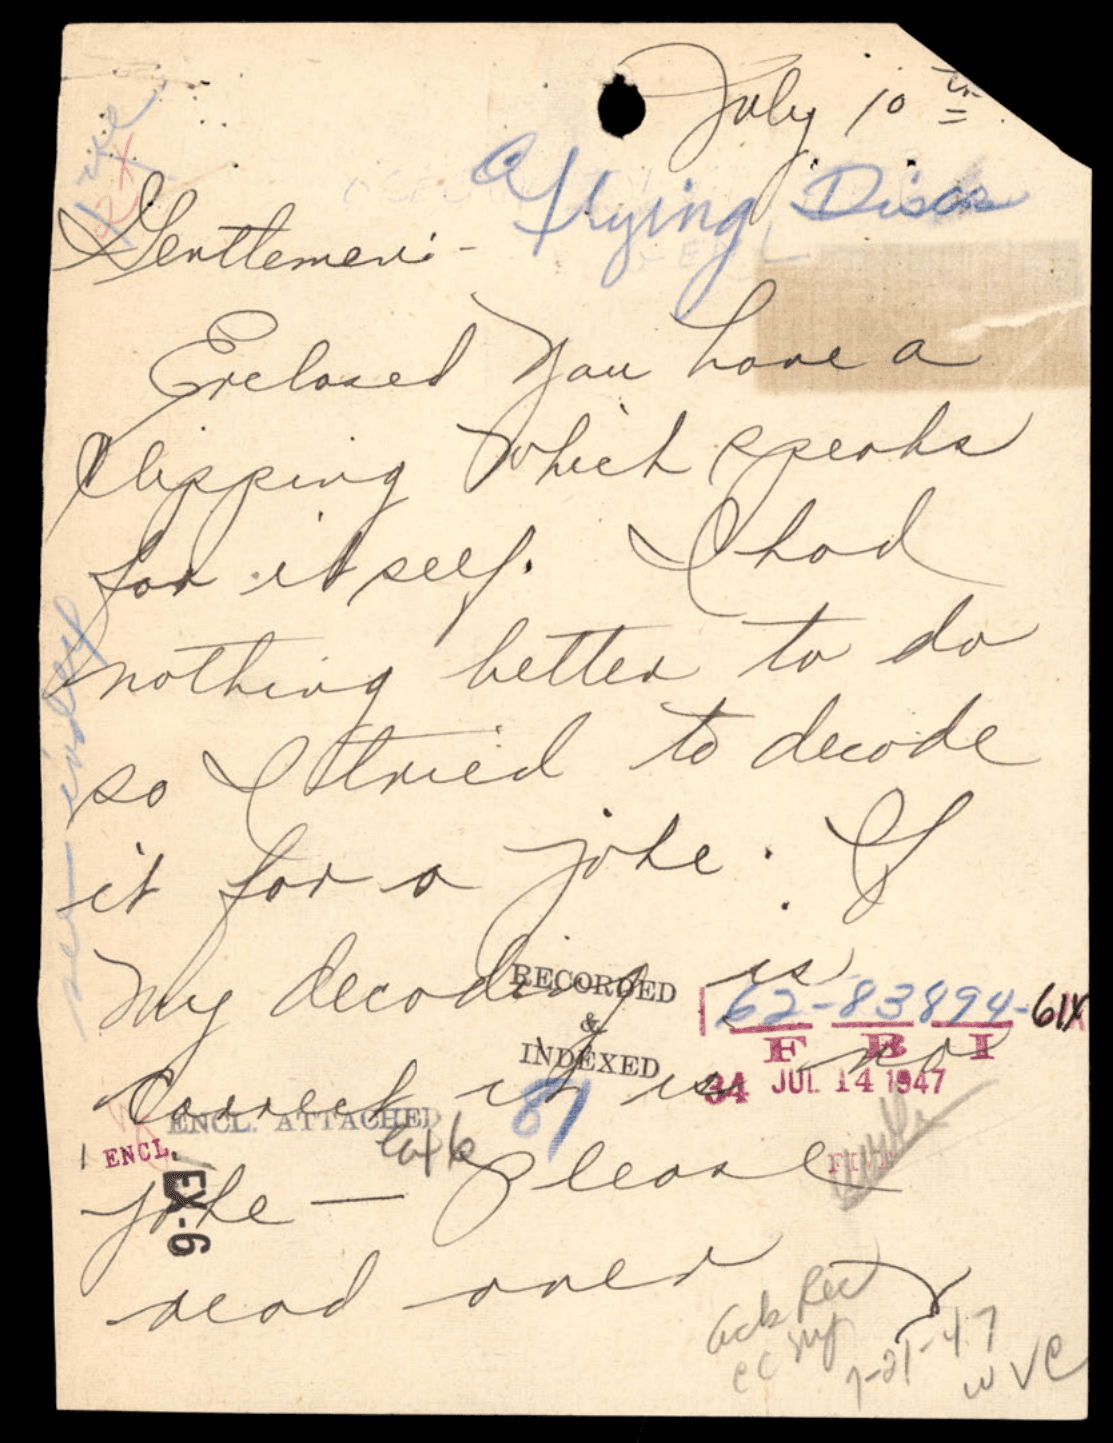 July 10 th
Flying Discs
Gentlemen:-
Enclosed you have a
clipping which speaks
for itself. I had
nothing better to do
so I tried to decode
it for a joke. If
my decoding is
RECORDED
&
INDEXED
62-83894-61X
F B I
correct it is no
34 JUL 14 1947
87
ENCL. ATTACHED
1 ENCL.
joke — Please
EX-6
read over
ack Rec
7-21-47
WVC